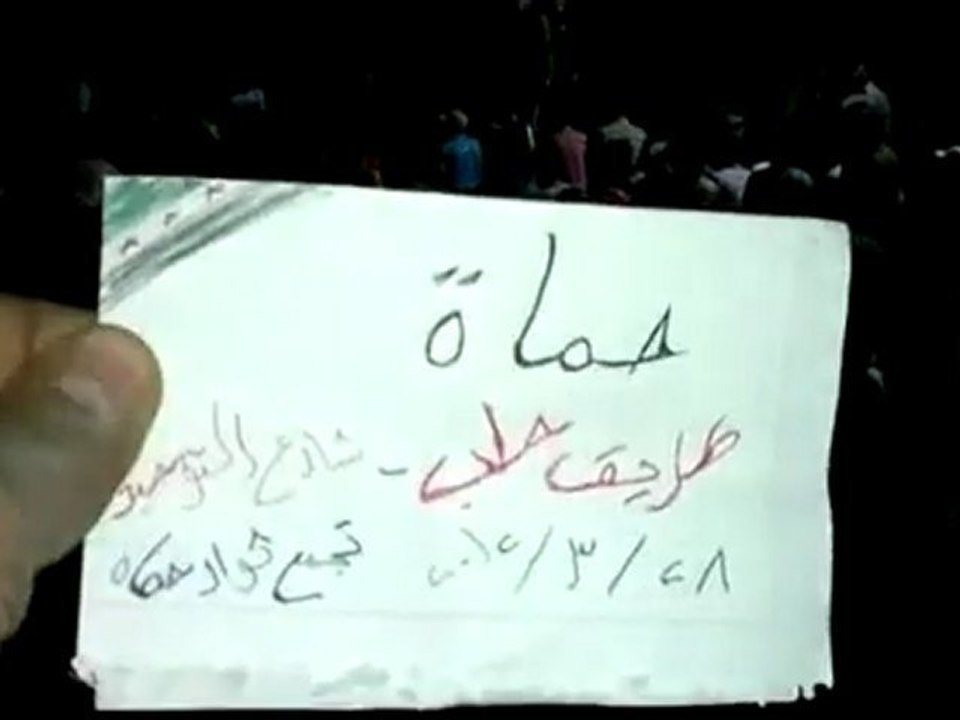 حماة
طريق حلب - شارع التوحيد
٢٨ / ٣ / ٢٠١٢ تجمع ثوار حماة